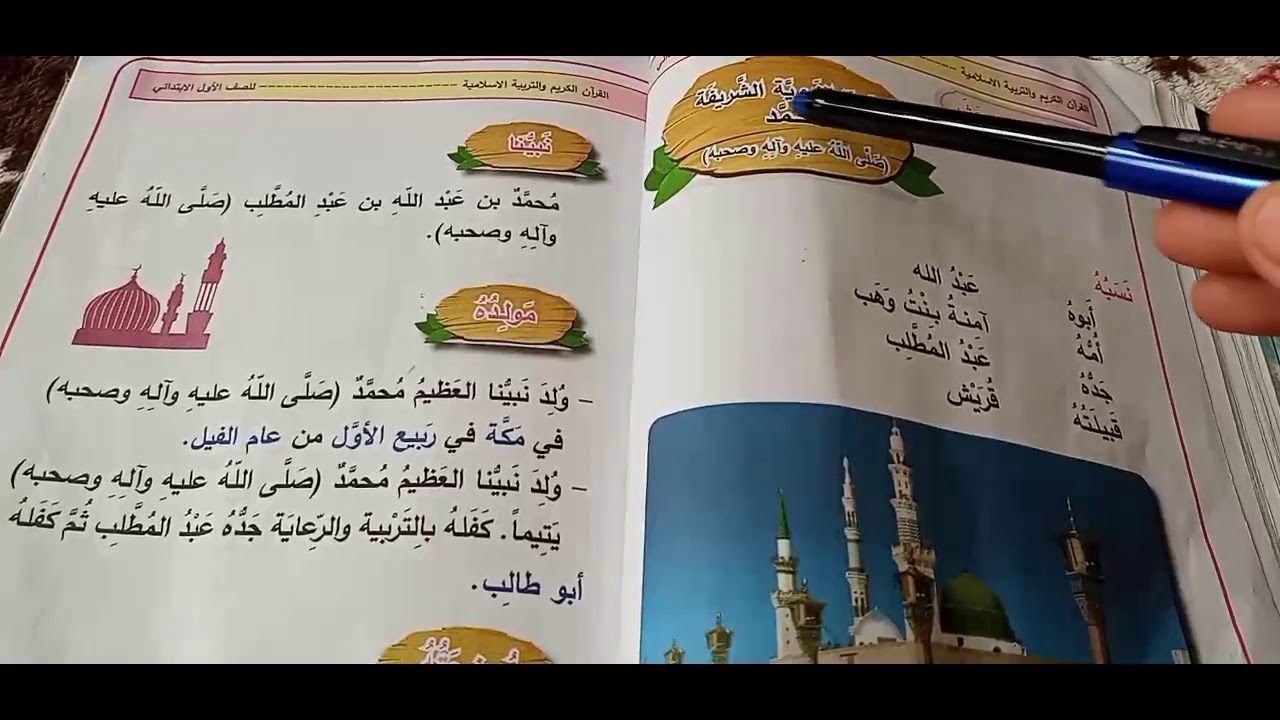 القرآن الكريم والتربية الاسلامية
الشَّريفَة
(صَلَّى اللّهُ عليهِ وآلِهِ وصحبه)
نَسَبُهُ
أَبوهُ عَبْدُ الله
أُمُّهُ آمَنةُ بِنْتُ وَهَب
جَدُّهُ عَبْدُ المُطَّلِب
قَبيلَتَهُ قُرَيْش
القرآن الكريم والتربية الاسلامية للصف الأول الابتدائي
نَبيُّنَا
مُحمَّدٌ بن عَبْد اللّهِ بن عَبْدِ المُطَّلِب (صَلَّى اللّهُ عليهِ
وآلِهِ وصحبه).
مَولِدُهُ
– وُلِدَ نَبيُّنا العَظيمُ مُحمَّدٌ (صَلَّى اللّهُ عليهِ وآلِهِ وصحبه)
في مَكَّة في رَبيع الأوَّل من عام الفيل.
– وُلِدَ نَبيُّنا العَظيمُ مُحمَّدٌ (صَلَّى اللّهُ عليهِ وآلِهِ وصحبه)
يَتِيماً. كَفَلهُ بالِتَرْبية والرِّعايَة جَدُّهُ عَبْدُ المُطَّلِب ثُمَّ كَفَلهُ
أبو طالِب.